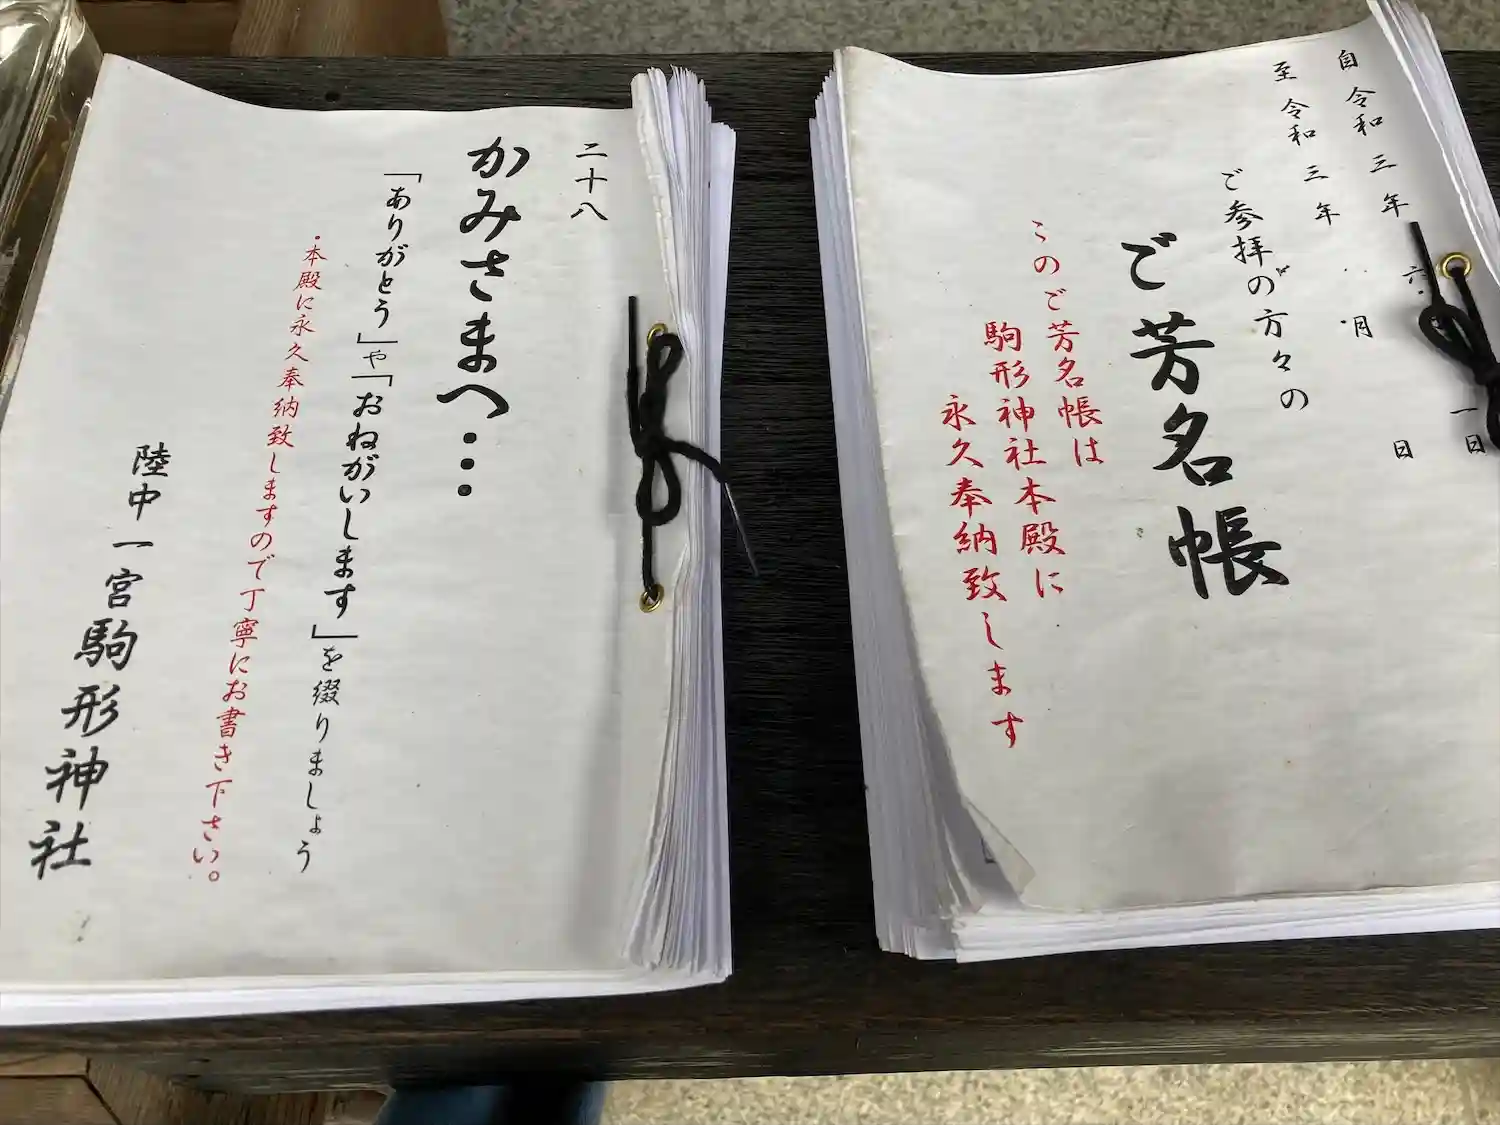 二十八
かみさまへ・・・
「ありがとう」や「おねがいします」を綴りましょう
・本殿に永久奉納致しますので丁寧にお書き下さい。
陸中一宮駒形神社
自令和三年六月一日
至令和三年 月 日
ご参拝の方々の
ご芳名帳
このご芳名帳は
駒形神社本殿に
永久奉納致します